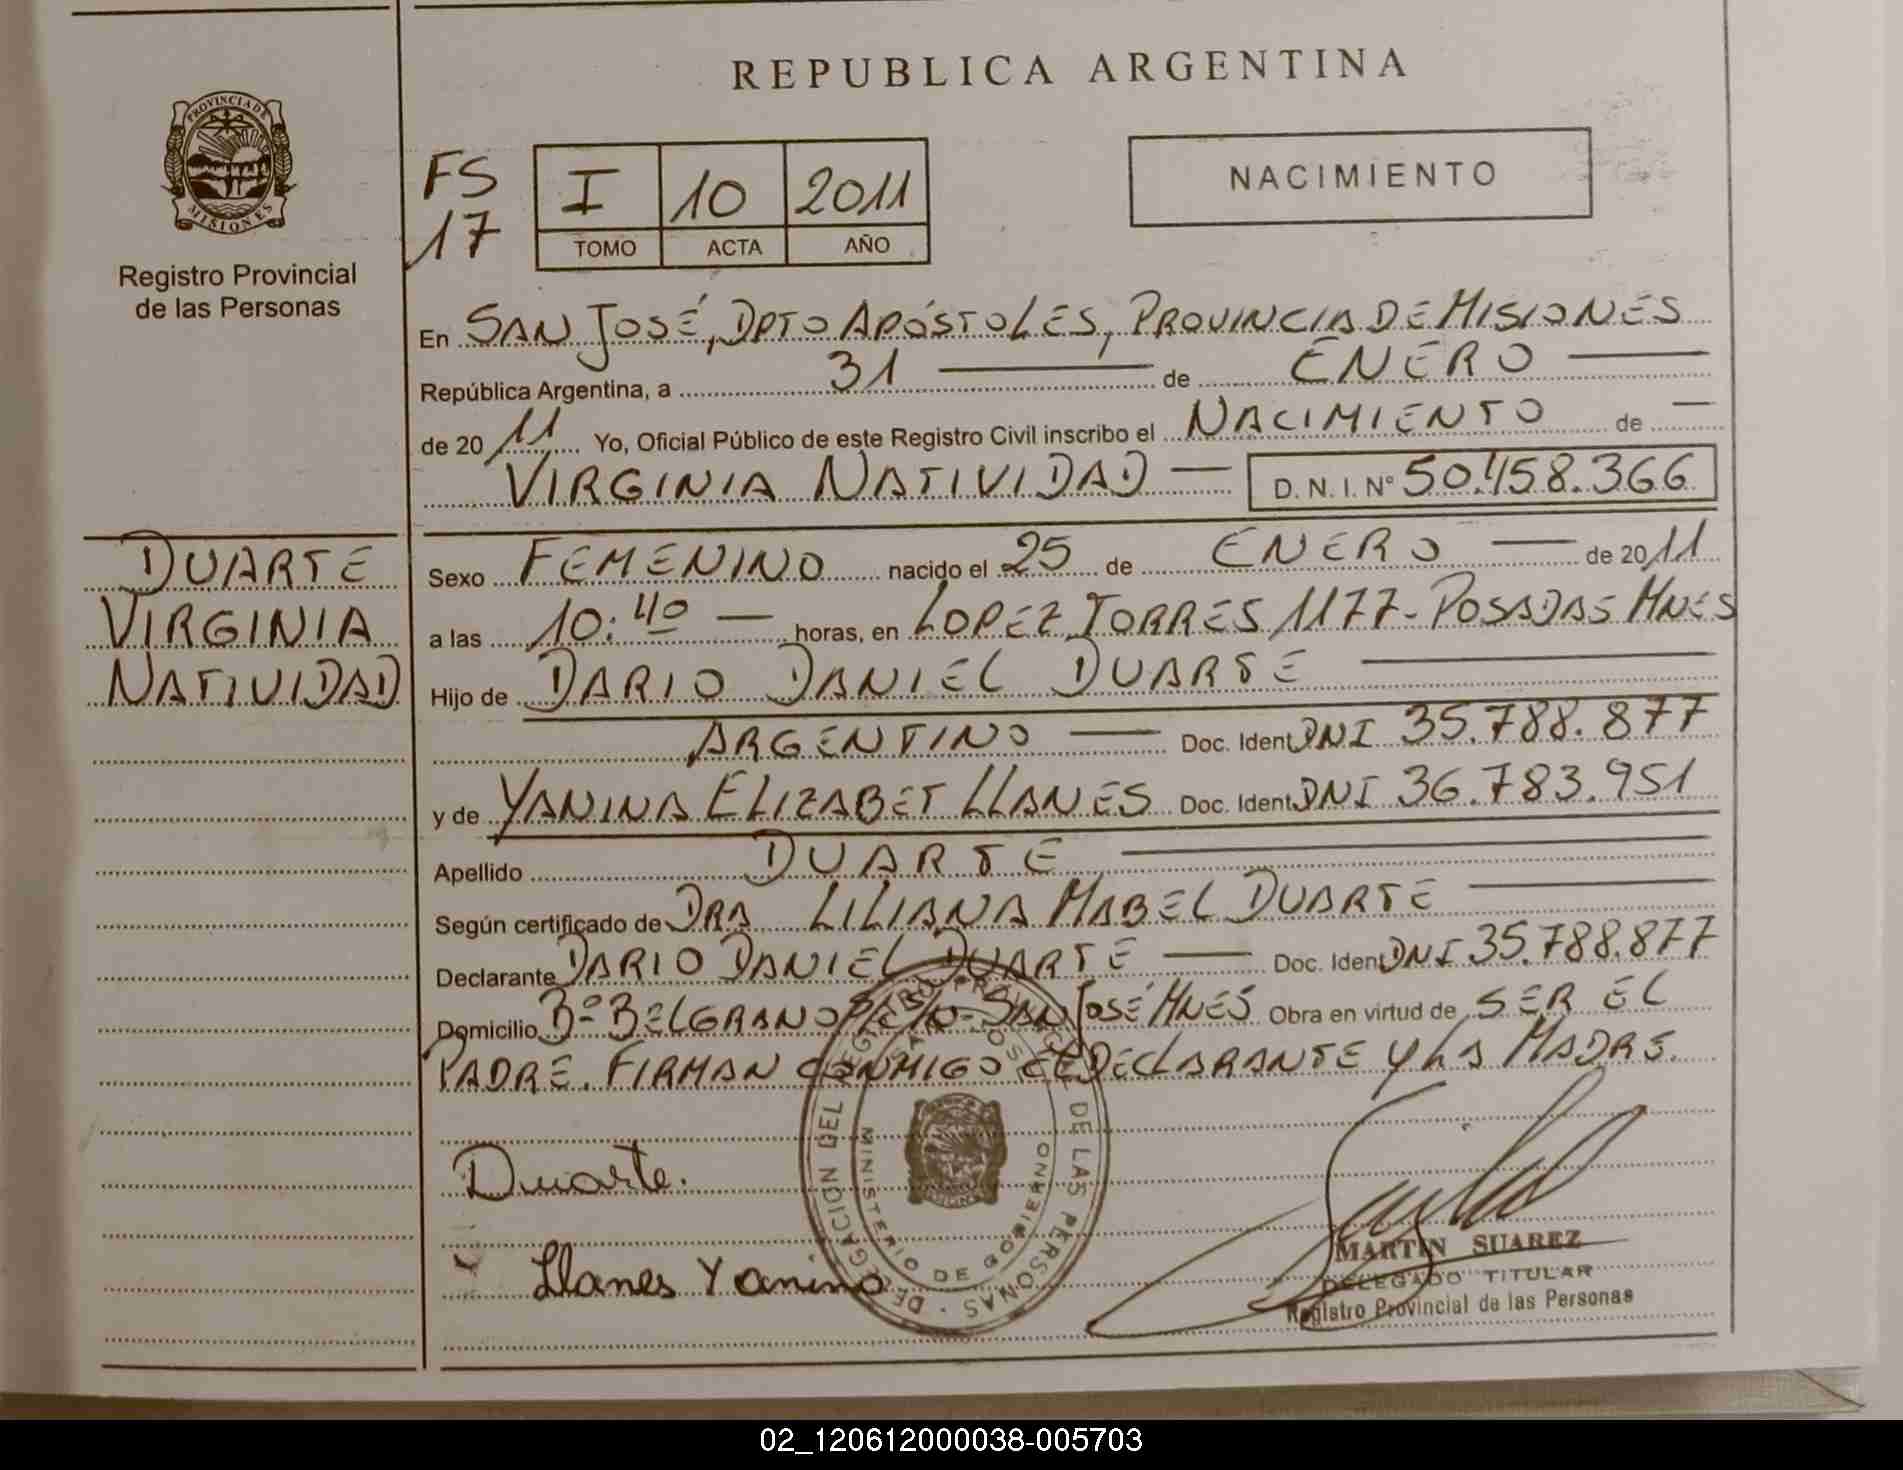 REPUBLICA ARGENTINA
PROVINCIA DE
MISIONES
Registro Provincial
de las Personas
FS
17
I 10 2011
TOMO ACTA AÑO
NACIMIENTO
En SAN JOSÉ, DPTO APÓSTOLES, PROVINCIA DE MISIONES
República Argentina, a 31 de ENERO
de 20 11 Yo, Oficial Público de este Registro Civil inscribo el NACIMIENTO de
VIRGINIA NATIVIDAD D. N. I. Nº 50.458.366
DUARTE
VIRGINIA
NATIVIDAD
Sexo FEMENINO nacido el 25 de ENERO de 20 11
a las 10:40 horas, en LOPEZ TORRES 1177-POSADAS MNES
Hijo de DARIO DANIEL DUARTE
ARGENTINO Doc. Ident DNI 35.788.877
y de YANINA ELIZABET LLANES Doc. Ident DNI 36.783.951
Apellido DUARTE
Según certificado de DRA LILIANA MABEL DUARTE
Declarante DARIO DANIEL DUARTE Doc. Ident DNI 35.788.877
Domicilio Bº BELGRANO SAN JOSÉ MNES Obra en virtud de SER EL
PADRE. FIRMAN CONMIGO EL DECLARANTE Y LA MADRE.
Duarte.
Llanes Yanina
DELEGACION DEL REGISTRO PROVINCIAL DE LAS PERSONAS
SAN JOSE
MINISTERIO DE GOBIERNO
MARTIN SUAREZ
DELEGADO TITULAR
Registro Provincial de las Personas
02_120612000038-005703